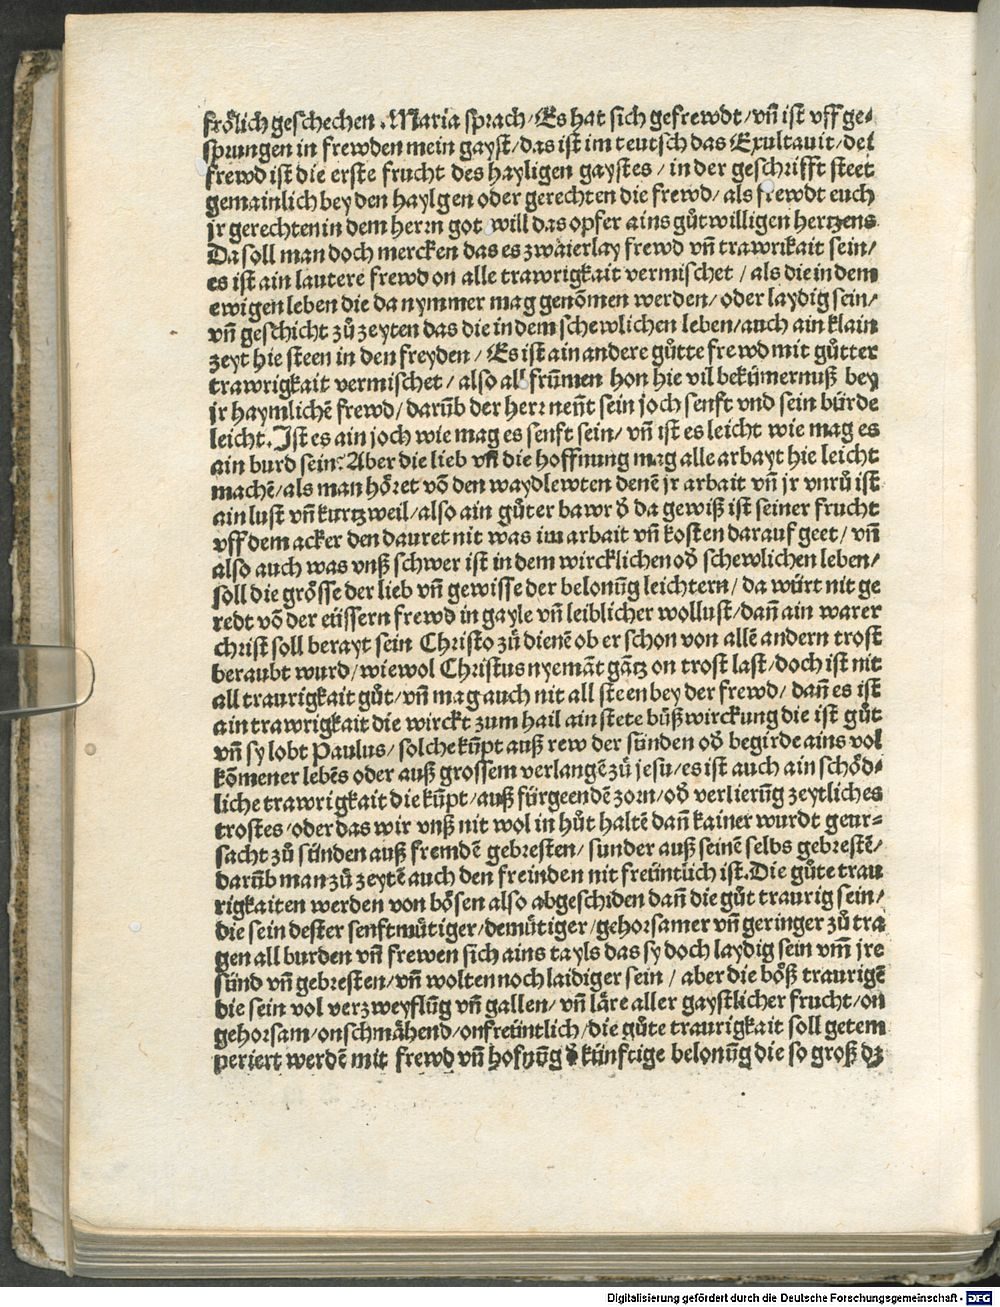 frölich geschechen. Maria sprach/ Es hat sich gefrewdt/ vn̄ ist vff ge-
sprungen in frewden mein gayst/ das ist im teutsch das Exultauit/ dei
frewd ist die erste frucht des hayligen gaystes/ in der geschrifft steet
gemainlich bey den haylgen oder gerechten die frewd/ als frewdt euch
jr gerechten in dem herrn got will das opfer ains gůtwilligen hertzens
Da soll man doch mercken das es zwaierlay frewd vn̄ trawrikait sein/
es ist ain lautere frewd on alle trawrigkait vermischet/ als die in dem
ewigen leben die da nymmer mag genōmen werden/ oder laydig sein/
vn̄ geschicht zů zeyten das die in dem schewlichen leben/ auch ain klain
zeyt hie steen in den freyden/ Es ist ain andere gůtte frewd mit gůtter
trawrigkait vermischet/ also all frūmen hon hie vil bekūmernuß bey
jr haymlichē frewd/ darūb der herr nent sein joch senft vnd sein bürde
leicht. Ist es ain joch wie mag es senft sein/ vn̄ ist es leicht wie mag es
ain burd sein: Aber die lieb vn̄ die hoffnung mag alle arbayt hie leicht
machē/ als man höret vō den waydlewten denē jr arbait vn̄ jr vnrů ist
ain lust vn̄ kurtzweil/ also ain gůter bawr d̄ da gewiß ist seiner frucht
vff dem acker den dauret nit was im arbait vn̄ kosten darauf geet/ vn̄
also auch was vnß schwer ist in dem wircklichen od̄ schewlichen leben/
soll die grösse der lieb vn̄ gewisse der belonūg leichtern/ da würt nit ge
redt vō der eüssern frewd in gayle vn̄ leiblicher wollust/ dan̄ ain warer
christ soll berayt sein Christo zů dienē ob er schon von allē andern trost
beraubt wurd/ wiewol Christus nyemāt gātz on trost last/ doch ist nit
all traurigkait gůt/ vn̄ mag auch nit all steen bey der frewd/ dan̄ es ist
ain trawrigkait die wirckt zum hail ain stete bůßwirckung die ist gůt
vn̄ sy lobt Paulus/ solche kūpt auß rew der sünden od̄ begirde ains vol
kōmener lebēs oder auß grossem verlangē zů jesu/ es ist auch ain schöd-
liche trawrigkait die kūpt/ auß fürgeendē zorn/ od̄ verlierūg zeytliches
trostes/ oder das wir vnß nit wol in hůt haltē dan̄ kainer wurdt geur-
sacht zů sünden auß fremdē gebresten/ sunder auß seinē selbs gebrestē/
darūb man zů zeytē auch den freinden nit freüntlich ist. Die gůte trau
rigkaiten werden von bösen also abgeschiden dan̄ die gůt traurig sein/
die sein dester senftmütiger/ demütiger/ gehorsamer vn̄ geringer zů tra
gen all burden vn̄ frewen sich ains tayls das sy doch laydig sein vm̄ jre
sünd vn̄ gebresten/ vn̄ wolten noch laidiger sein/ aber die böß traurigē
die sein vol verzweyflūg vn̄ gallen/ vn̄ läre aller gaystlicher frucht/ on
gehorsam/ onschmähend/ onfreüntlich/ die gůte traurigkait soll getem
periert werdē mit frewd vn̄ hofnūg d̄ künftige belonūg die so groß dz
Digitalisierung gefördert durch die Deutsche Forschungsgemeinschaft - DFG